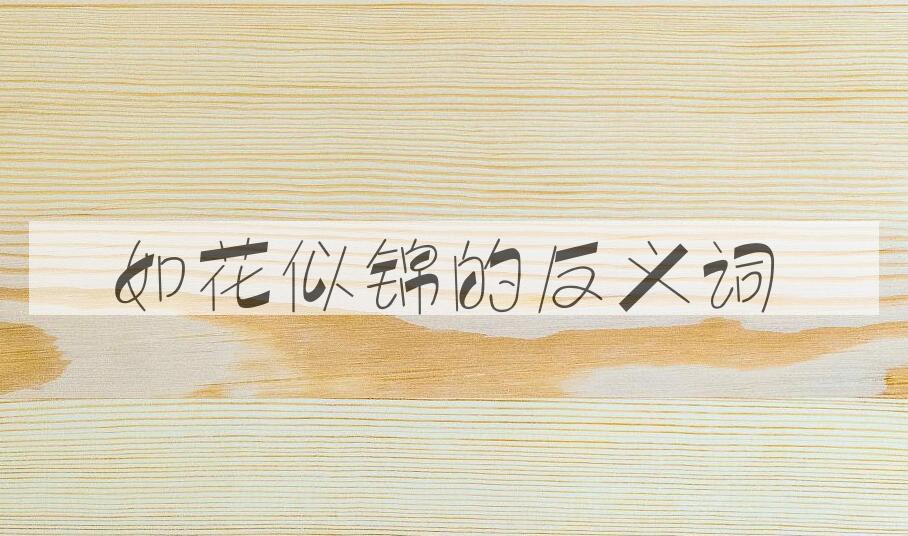 如花似锦的反义词